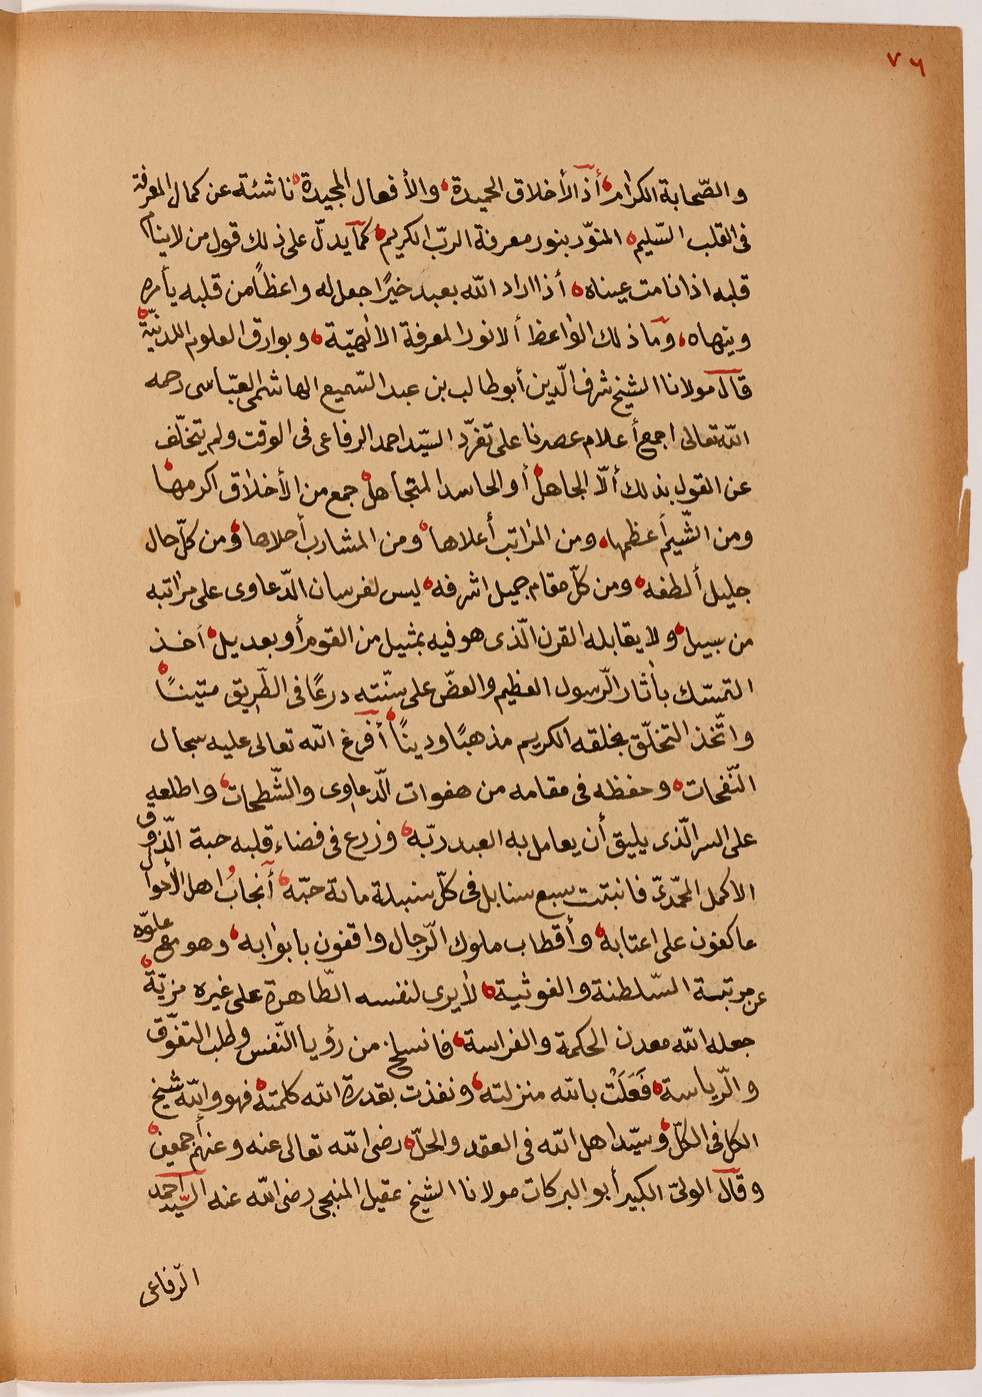 ٧٦
والصّحابة الكرام، أذ الأخلاق الحميدة، والأفعال المجيدة، ناشئة عن كمال المعرفة
فى القلب السّليم، المنوّر بنور معرفة الربّ الكريم، كما يدلّ على ذلك قول من لاينام
قلبه اذا نامت عيناه، أذا اراد الله بعبد خيرًا جعل له واعظًا من قلبه يأمره
وينهاه، وما ذلك الواعظ ألا نور المعرفة الالٰهيّة، وبوارق العلوم اللدنيّة،
قال مولانا الشيخ شرف الّدين أبو طالب بن عبد السّميع الهاشمى العبّاسى رحمه
الله تعالى اجمع أعلام عصرنا على تفرّد السيّد احمد الرفاعى فى الوقت ولم يتخلّف
عن القول بذلك ألّا الجاهل، أو الحاسد المتجاهل، جمع من الأخلاق اكرمها،
ومن الشّيم أعظمها، ومن المراتب أعلاها، ومن المشارب أحلاها، ومن كلّ حال
جليل ألطفه، ومن كلّ مقام جميل اشرفه، ليس لفرسان الدّعاوى على مراتبه
من سبيل، ولا يقابله القرن الّذى هو فيه بمثيل من القوم أو بعديل، أخذ
التمسّك بأثار الرّسول العظيم والعضّ على سنّته درعًا فى الطّريق متينًا،
واتّخذ التخلّق بخلقه الكريم مذهبًا ودينًا، أفرغ الله تعالى عليه سجال
النّفحات، وحفظه فى مقامه من هفوات الّدعاوى والشّطحات، واطلعه
على السر الّذى يليق أن يعامل به العبد ربّه، وزرع فى فضاء قلبه حبة الذّوق
الاكمل المحمّدىّ فانبتت سبع سنابل فى كلّ سنبلة مائة حبّه، أنجابُ اهل الأحوال
عاكفون على اعتابه، وأقطاب ملوك الرّجال واقفون بابوابه، وهو مع علوّه
عن مرتبة السّلطنة والغوثية، لايرى لنفسه الطّاهرة على غيره مزيّة،
جعله الله معدن الحكمة والفراسة، فانسلخ من رؤيا النّفس وطلب التفوّق
والرّياسة، فَعَلَتْ بالله منزلته، ونفذت بقدرة الله كلمته، فهو والله شيخ
الكل فى الكلّ، وسيّد اهل الله فى العقد والحلّ، رضى الله تعالى عنه وعنهم أجمعين،
وقال الولىّ الكبير أبو البركات مولانا الشيخ عقيل المنبجى رضى الله عنه السّيد احمد
الرّفاعى